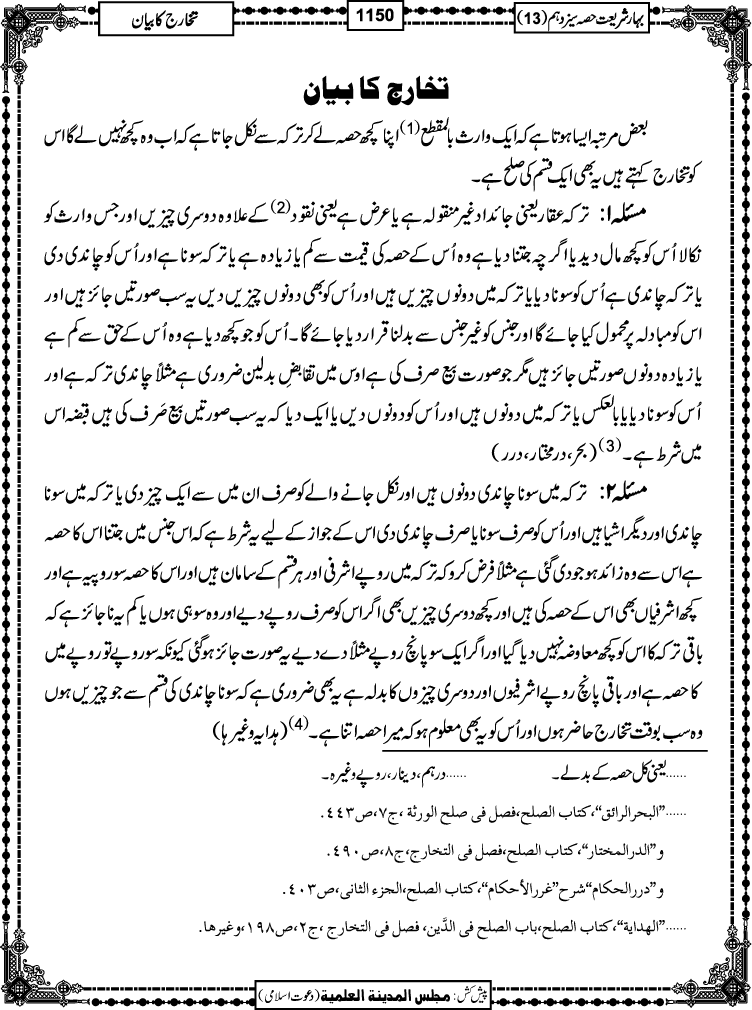 بہارِ شریعت حصہ سیزدہم (13)
1150
تخارج کا بیان
تخارج کا بیان
بعض مرتبہ ایسا ہوتا ہے کہ ایک وارث بالمقطع(1) اپنا کچھ حصہ لے کر ترکہ سے نکل جاتا ہے کہ اب وہ کچھ نہیں لے گا اس
کو تخارج کہتے ہیں یہ بھی ایک قسم کی صلح ہے۔
مسئلہ ۱: ترکہ عقار یعنی جائداد غیر منقولہ ہے یا عرض ہے یعنی نقود(2) کے علاوہ دوسری چیزیں اور جس وارث کو
نکالا اُس کو کچھ مال دیدیا اگرچہ جتنا دیا ہے وہ اُس کے حصہ کی قیمت سے کم یا زیادہ ہے یا ترکہ سونا ہے اور اُس کو چاندی دی
یا ترکہ چاندی ہے اُس کو سونا دیا یا ترکہ میں دونوں چیزیں ہیں اور اُس کو بھی دونوں چیزیں دیں یہ سب صورتیں جائز ہیں اور
اس کو مبادلہ پر محمول کیا جائے گا اور جنس کو غیر جنس سے بدلنا قرار دیا جائے گا۔ اُس کو جو کچھ دیا ہے وہ اُس کے حق سے کم ہے
یا زیادہ دونوں صورتیں جائز ہیں مگر جو صورت بیع صرف کی ہے اوس میں تقابضِ بدلین ضروری ہے مثلاً چاندی ترکہ ہے اور
اُس کو سونا دیا یا بالعکس یا ترکہ میں دونوں ہیں اور اُس کو دونوں دیں یا ایک دیا کہ یہ سب صورتیں بیع صَرف کی ہیں قبضہ اس
میں شرط ہے۔(3) (بحر، درمختار، درر)
مسئلہ ۲: ترکہ میں سونا چاندی دونوں ہیں اور نکل جانے والے کو صرف ان میں سے ایک چیز دی یا ترکہ میں سونا
چاندی اور دیگر اشیا ہیں اور اُس کو صرف سونا یا صرف چاندی دی اس کے جواز کے لیے یہ شرط ہے کہ اس جنس میں جتنا اس کا حصہ
ہے اس سے وہ زائد ہو جو دی گئی ہے مثلاً فرض کرو کہ ترکہ میں روپے اشرفی اور ہر قسم کے سامان ہیں اور اس کا حصہ سو روپیہ ہے اور
کچھ اشرفیاں بھی اس کے حصہ کی ہیں اور کچھ دوسری چیزیں بھی اگر اس کو صرف روپے دیے اور وہ سو ہی ہوں یا کم یہ ناجائز ہے کہ
باقی ترکہ کا اس کو کچھ معاوضہ نہیں دیا گیا اور اگر ایک سو پانچ روپے مثلاً دے دیے یہ صورت جائز ہو گئی کیونکہ سو روپے تو روپے میں
کا حصہ ہے اور باقی پانچ روپے اشرفیوں اور دوسری چیزوں کا بدلہ ہے یہ بھی ضروری ہے کہ سونا چاندی کی قسم سے جو چیزیں ہوں
وہ سب بوقت تخارج حاضر ہوں اور اُس کو یہ بھی معلوم ہو کہ میرا حصہ اتنا ہے۔(4) (ہدایہ وغیرہا)
......یعنی کل حصہ کے بدلے۔ ......درہم، دینار، روپے وغیرہ۔
......”البحرالرائق“، کتاب الصلح، فصل فی صلح الورثۃ، ج۷، ص۴۴۳.
و”الدرالمختار“، کتاب الصلح، فصل فی التخارج، ج۸، ص۴۹۰.
و”دررالحکام“ شرح ”غررالأحکام“، کتاب الصلح، الجزء الثانی، ص۴۰۳.
......”الھدایۃ“، کتاب الصلح، باب الصلح فی الدَّین، فصل فی التخارج، ج۲، ص۱۹۸، وغیرھا.
پیش کش: مجلس المدینۃ العلمیۃ (دعوت اسلامی)